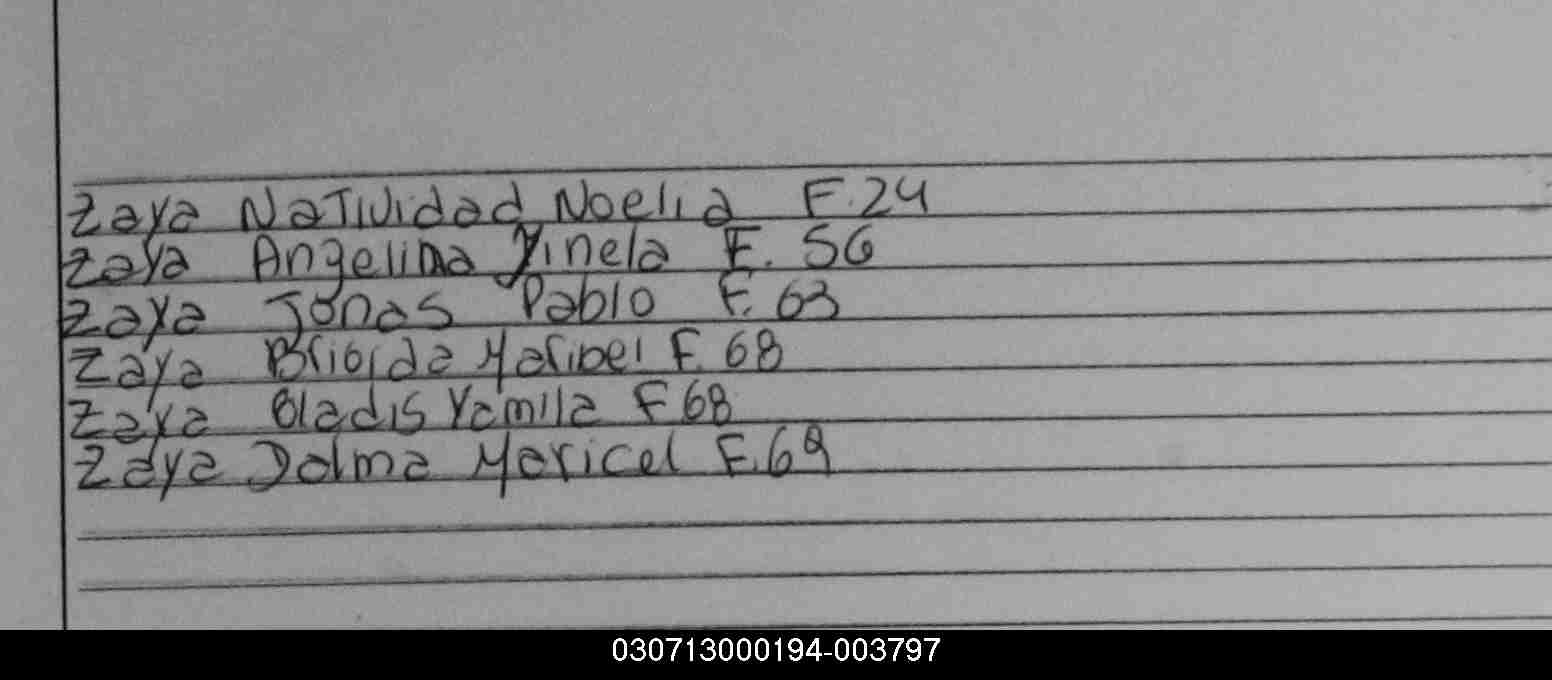 Zaya Natividad Noelia F.24
Zaya Angelina Yinela F. 56
Zaya Jonas Pablo F. 63
Zaya Brigida Maribel F. 68
Zaya Gladis Yamila F 68
Zaya Dalma Maricel F.69
030713000194-003797